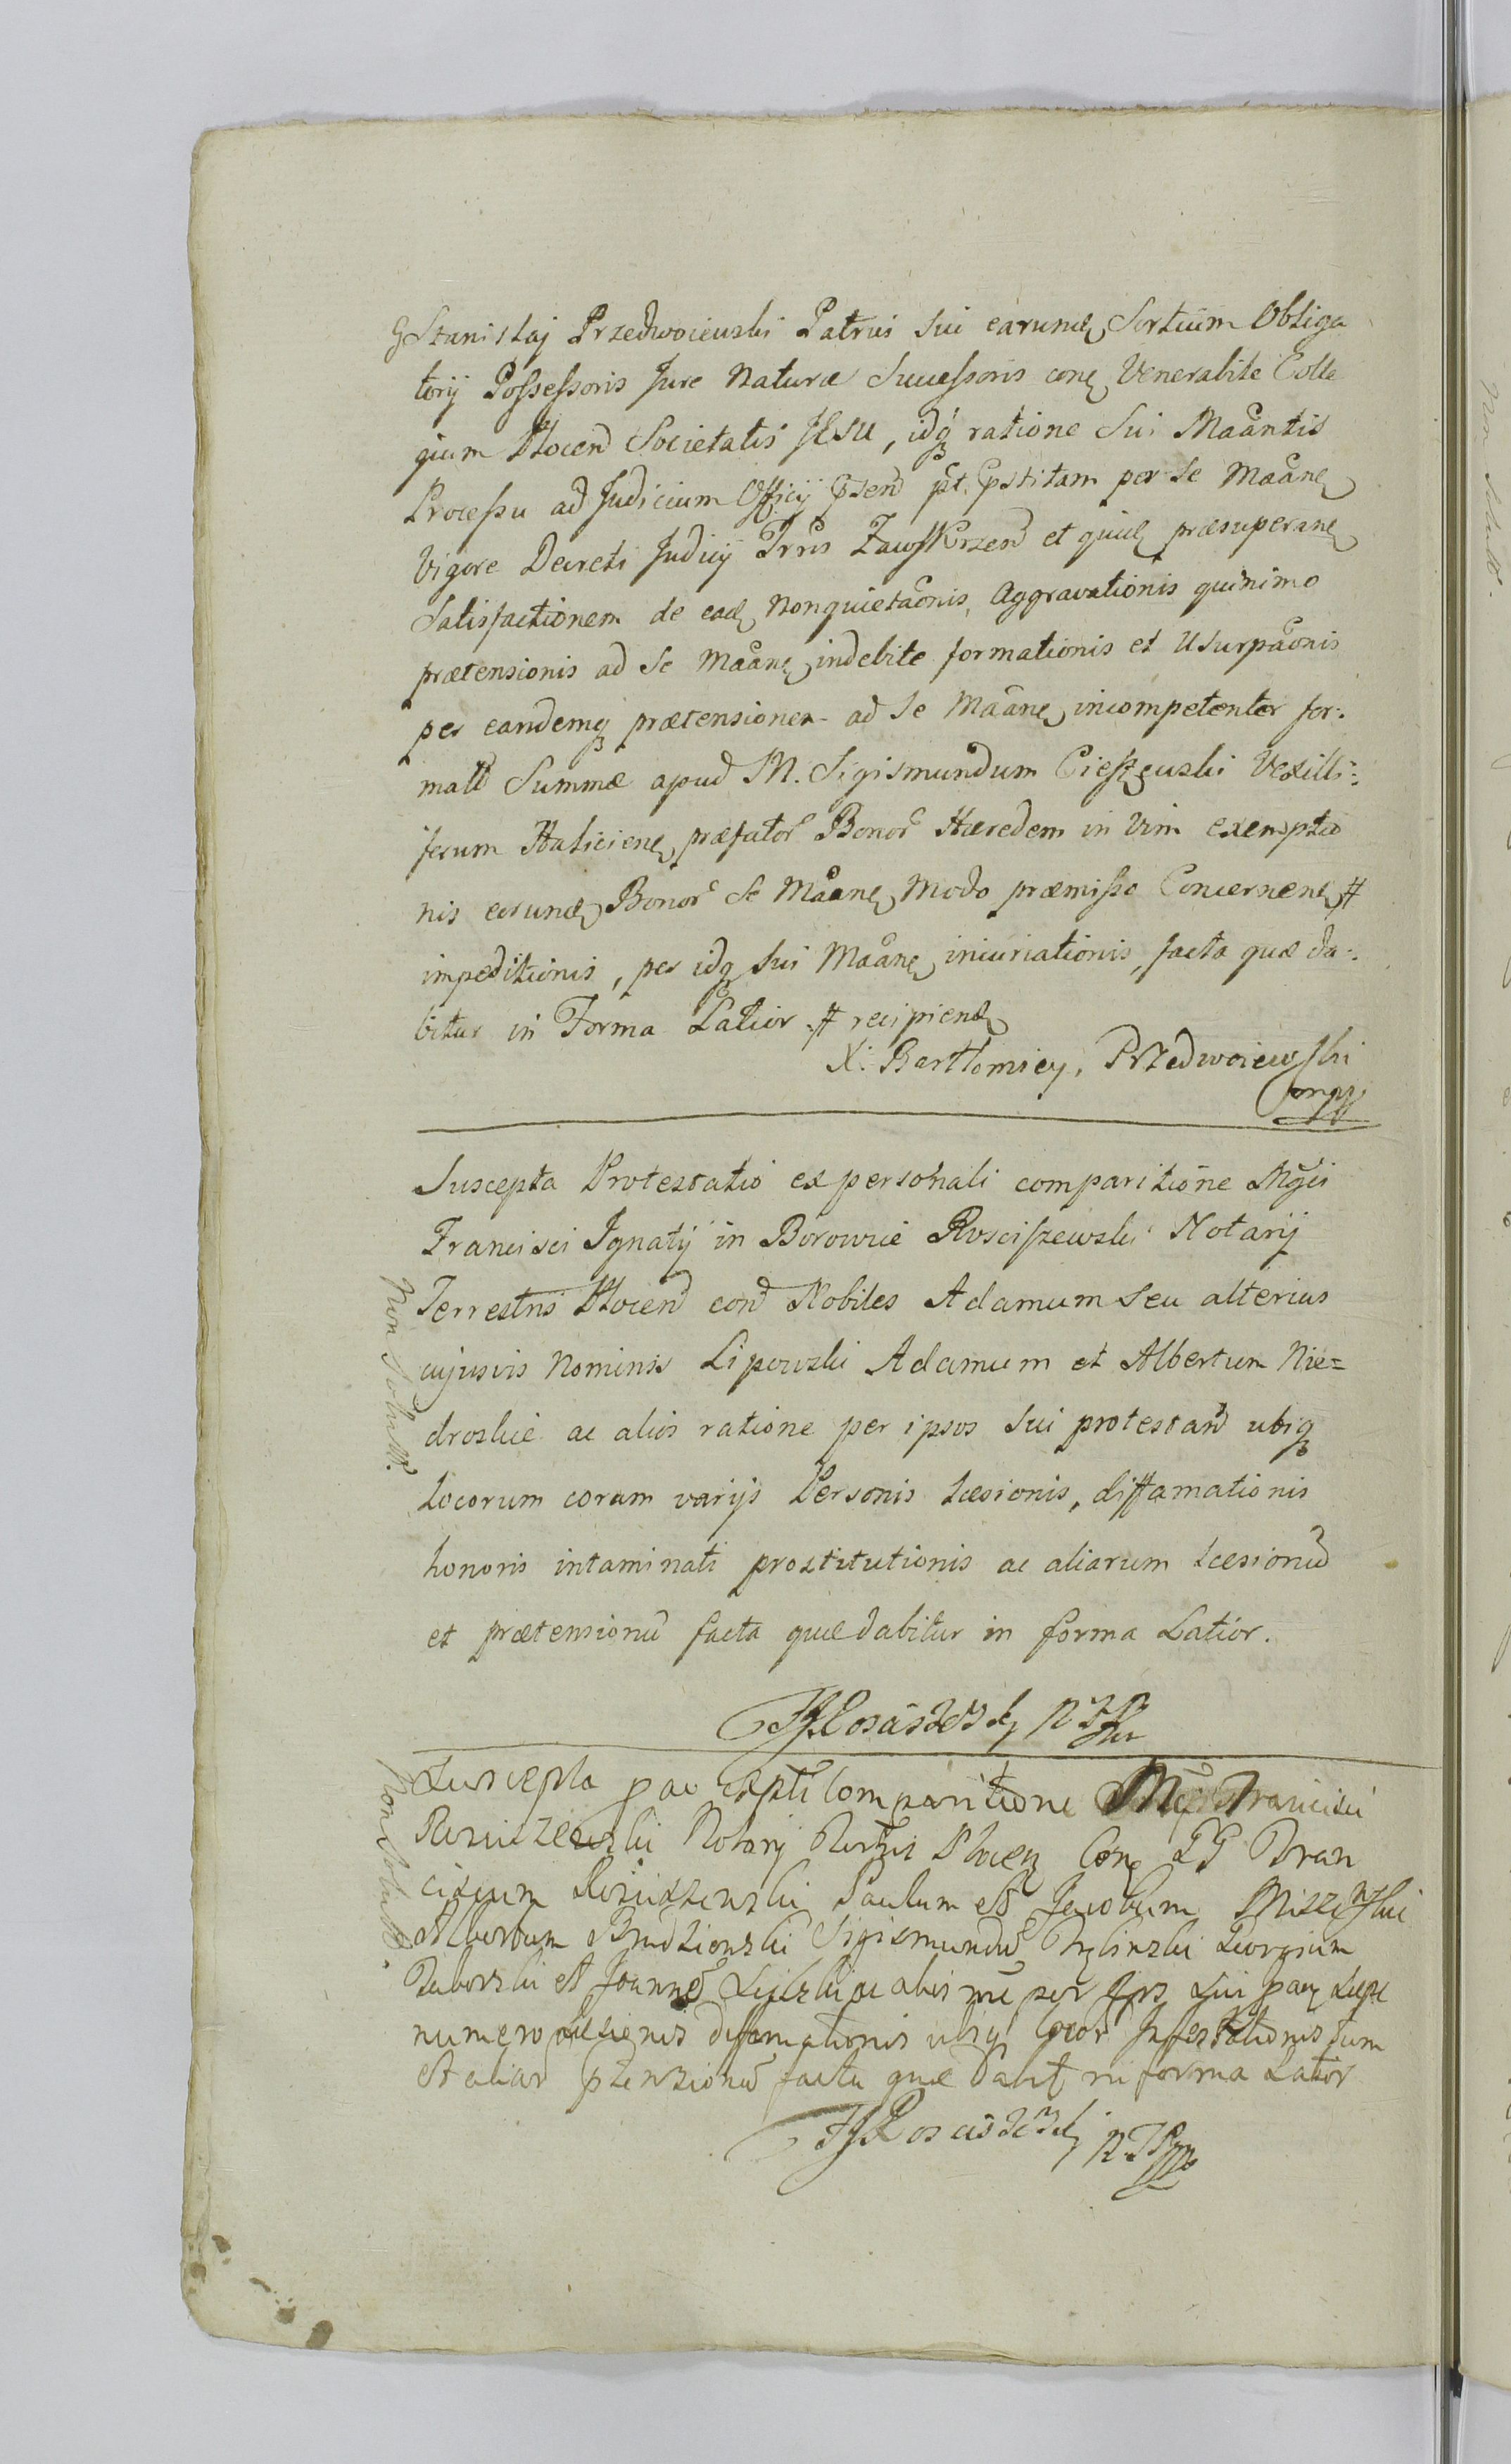 G Stanislaj Przedwoiewski Patrui Sui earund Sortium Obliga
torij Possessoris Jure Naturæ Successoris conq Venerabile Colle
gium Plocen Societatis JESU, idq ratione Sui Maantis
Processu ad Judicium Officij psen pt. pstitam per Se Maanq
Vigore Decreti Judicij Trris ZawsKrzen et quid præsuperanq
Satisfactionem de ead nonquietaonis, Aggravationis quinimo
prætensionis ad Se Maanq indebite formationis et Usurpaonis
per eandemq prætensionem ad Se Maanq incompetenter for:
matt Summæ apud M. Sigismundum Cieszewski Vexilli:
ferum Haliciens præfator Bonor Hæredem in Vim exemptio
nis eorund Bonor Se Maanq Modo præmisso Concernenq #
impeditionis, per idq Sui Maanq iniuriationis, facta quæ da:
bitur in Forma Latior. # recipiend
X. Bartłomiey, Przedwoiewski
mpp
Suscepta Protestatio ex personali comparitione Mgci
Francisci Ignatij in Borowice Rosciszewski Notarij
Terrestris Plocen con Nobiles Adamum seu alterius
cujusvis Nominis Lipowski Adamum et Albertum Nie=
droskie ac alios ratione per ipsos Sui protestan ubiq
Locorum coram varijs Personis Læsionis, diffamationis
honoris intaminati prostitutionis ac aliarum Læsionu
et prætensionu facta quæ dabitur in forma Latior.
Non Solutt.
FJRosciszewski NZP
Suscepta p ac septi Comparitione Mgci Francisci
Rosciszewski Notarij Terris Plocen Conq GG Fran
ciscum Rosciszewski Paulum et Jacobum Miszewskie
Albertum Brudzionski Sigismundu Georgium
et Joannem ac alios per ips Sui
numero Læsionis difamationis ubiq locor Infestationis tum
et aliar ptensionu facta quæ dabit in forma Latior
Non Solutt.
FJRosciszewski NZP mpp